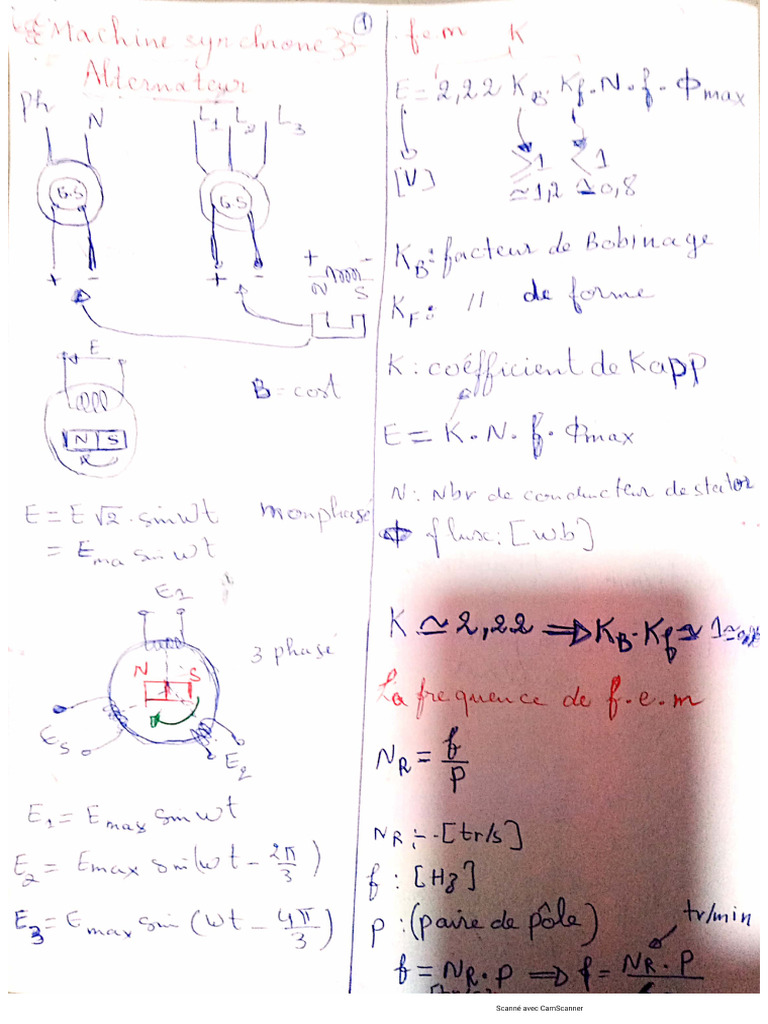 Machine synchrone
1
Alternateur
Ph N L1 L2 L3
G.S G.S
+ - + - + -
N S
E
B = cost
N S
E = E√2 . sin wt monphasé
= Ema sin wt
E1
3 phasé
N S
E3
E2
E1 = Emax sin wt
E2 = Emax sin(wt - 2π/3)
E3 = Emax sin (wt - 4π/3)
f.e.m K
E = 2,22 KB. Kf. N. f. Φmax
[V] >1 <1
≃1,2 ≃0,8
KB: facteur de Bobinage
KF: // de forme
K: coéfficient de Kapp
E = K. N. f. Φmax
N: Nbr de conducteur de stator
Φ flux: [wb]
K ≃ 2,22 ⇒ KB. Kf ≃ 1
La frequence de f.e.m
NR = f/P
NR :- [tr/s]
f : [Hz]
P : (paire de pôle)
tr/min
f = NR . P ⇒ f = NR . P
Scanné avec CamScanner